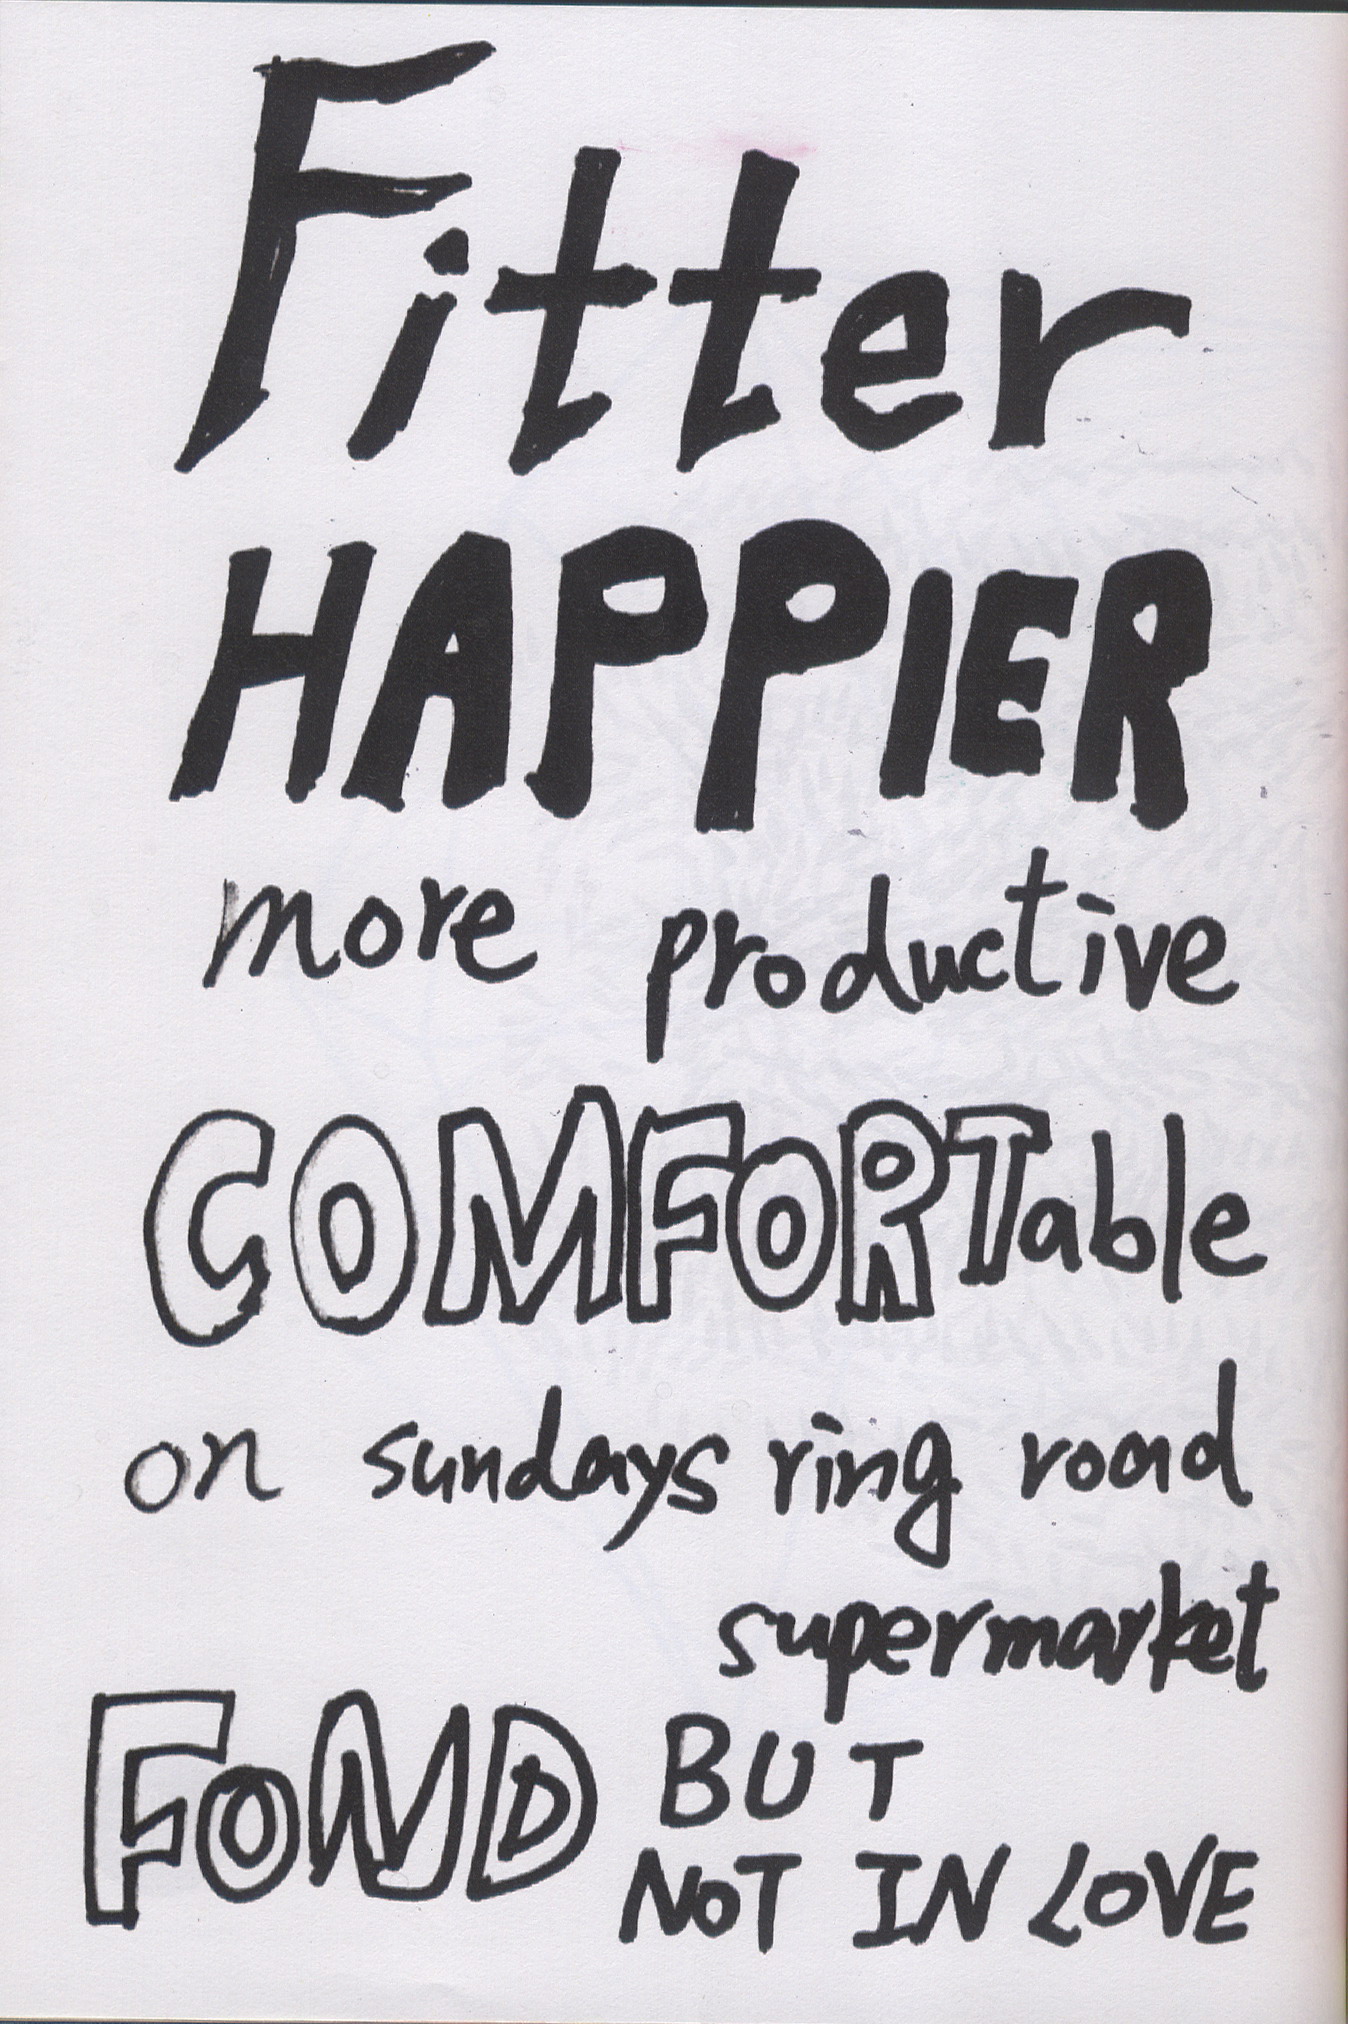 Fitter
HAPPIER
more productive
COMFORTable
on sundays ring road
supermarket
FOND BUT
NOT IN LOVE